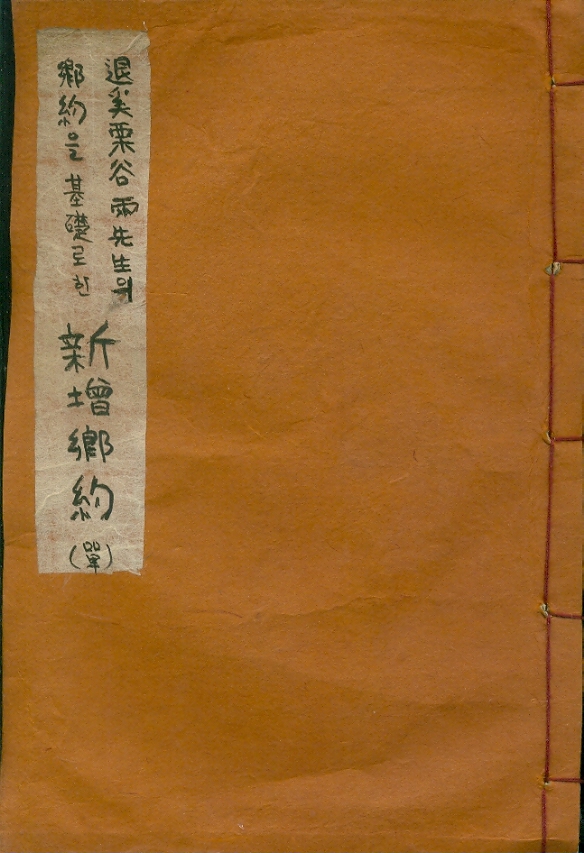 退溪栗谷兩先生의
鄕約을 基礎로한
新增鄕約
(單)